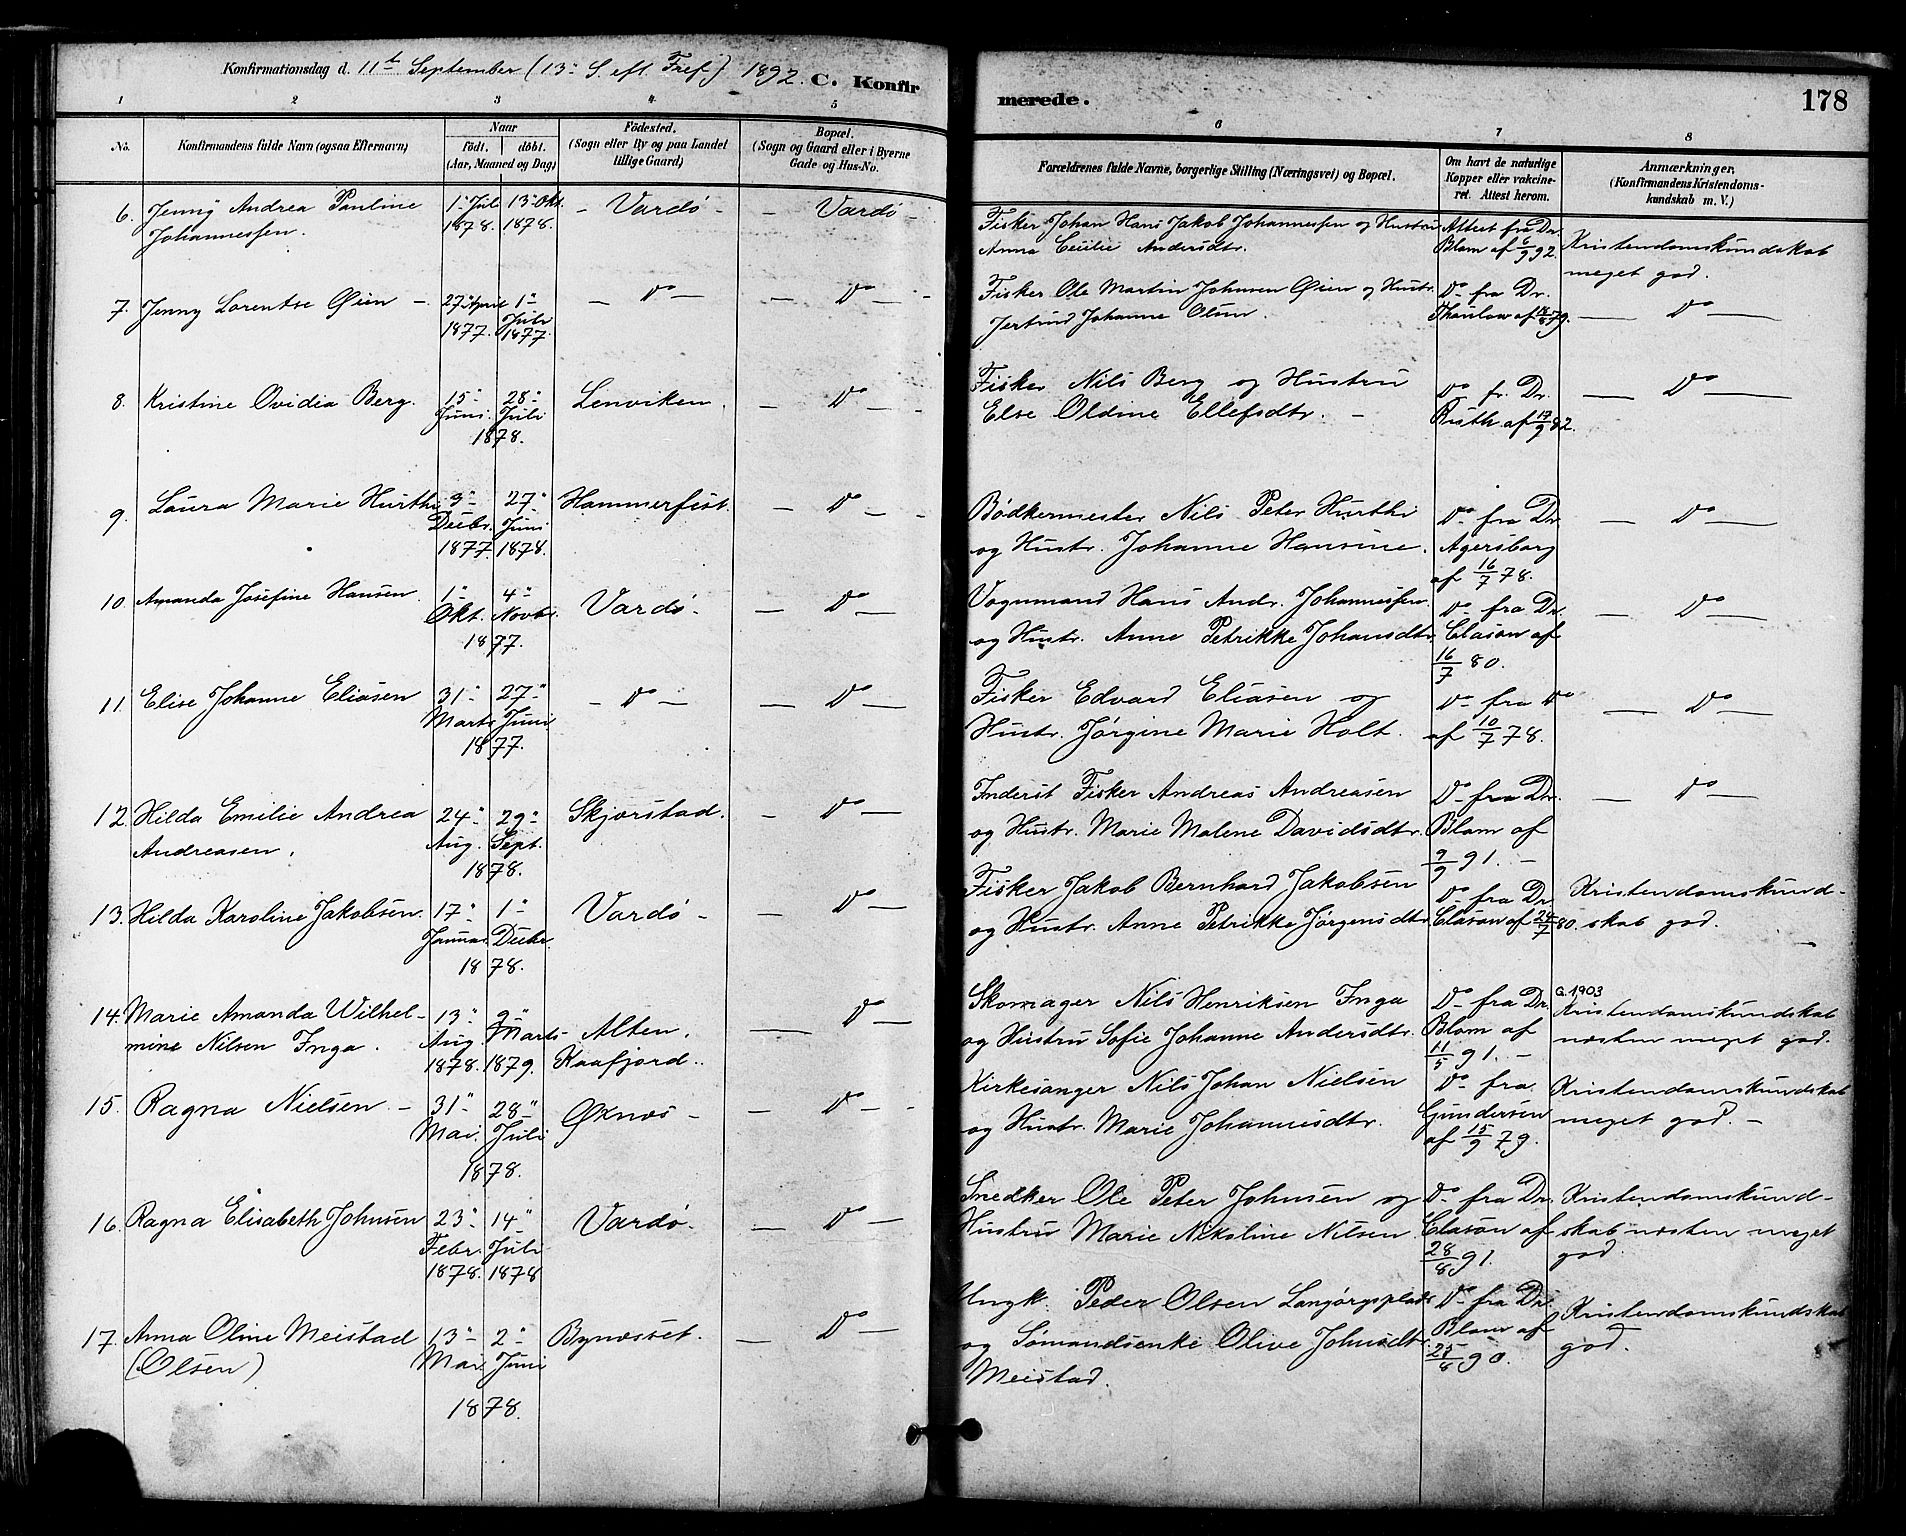 Konfirmationsdag d. 11t September (13. S. eft. Tref.) 1892. C. Konfir
1 2 3 4 5
No.
Konfirmandens fulde Navn (ogsaa Efternavn)
Naar
födt. döbt.
(Aar, Maaned og Dag)
Födested.
(Sogn eller By og paa Landet
tillige Gaard)
Bopæl.
(Sogn og Gaard eller i Byerne
Gade og Hus-No.
6. Jenny Andrea Pauline
Johannessen.
1. Juli 13. Okt.
1878. 1878.
- Vardø -
- Vardø -
7. Jenny Lorentse Øien -
27. April 1.
Juli
1877. 1877.
- Do -
- Do -
8. Kristine Ovidia Berg.
15. 28.
Juni. Juli
1878.
Lenviken.
- Do -
9. Laura Marie Hurthi
9. 27.
Decbr. Juni
1877. 1878.
Hammerfest.
- Do -
10. Amanda Josefine Hansen
1. 4.
Okt. Novbr.
1877.
Vardø.
- Do -
11. Elise Johanne Eliasen
31. 27.
Marts Juni
1877.
- Do -
- Do -
12. Hilda Emilie Andrea
Andreasen.
24. 29.
Aug. Sept.
1878.
Skjerstad.
- Do -
13. Hilda Karoline Jakobsen.
17. 1.
Januar Decbr.
1878.
Vardø -
- Do -
14. Marie Amanda Wilhel-
mine Nilsen Inga.
13. 9.
Aug. Marts
1878. 1879.
Alten,
Kaafjord.
- Do -
15. Ragna Nielsen -
31. 28.
Mai. Juli
1878.
Øxnæs -
- Do -
16. Ragna Elisabeth Johnsen
23. 14.
Febr. Juli
1878. 1878
Vardø.
- Do -
17. Anna Oline Meistad
(Olsen)
13. 2.
Mai. Juni
1878.
Bynæsset.
- Do -
merede. 178
6 7 8
Forældrenes fulde Navne, borgerlige Stilling (Næringsvei) og Bopæl.
Om havt de naturlige
Kopper eller vakcine-
ret. Attest herom.
Anmærkninger,
(Konfirmandens Kristendoms-
kundskab m. V.)
Fisker Johan Hans Jakob Johannessen og Hustru
Anna Cecilie Andersdtr.
Attest fra Dr.
Blom af 6/9 92.
Kristendomskundskab
meget god.
Fisker Ole Martin Johnsen Øien og Hustr.
Jertrud Johanne Olsen.
Do fra Dr.
Thaulow af 18/8 79.
- Do -
Fisker Nils Berg og Hustru
Else Oldine Ellefsdtr. -
Do fr. Dr.
Ruth af 17/9 82.
- Do -
Bødkermester Nils Peter Hurthi
og Hustr. Johanne Hansine.
Do fra Dr
Agersborg
af 16/7 78.
- Do -
Vognmand Hans Andr. Johannessen
og Hustr. Anne Petrikke Johansdtr.
Do fra Dr.
Clason af
16/7 80.
- Do -
Fisker Edvard Eliasen og
Hustr. Jørgine Marie Holt.
Do fra Do
af 10/7 78.
- Do -
Inderst Fisker Andreas Andreasen
og Hustr. Marie Malene Davidsdtr.
Do fra Dr.
Blom af
9/9 91. -
- Do -
Fisker Jakob Bernhard Jakobsen
og Hustr. Anne Petrikke Jørgensdtr.
Do fra Dr.
Clason af 24/7 80.
Kristendomskund-
skab god.
Skomager Nils Henriksen Inga
og Hustru Sofie Johanne Andersdtr.
Do fra Dr
Blom af
11/5 91. -
G. 1903
Kristendomskundskab
næsten meget god.
Kirkesanger Nils Johan Nielsen
og Hustr. Marie Johannesdtr.
Do fra
Gundersen
af 15/9 79.
Kristendomskundskab
meget god. -
Snedker Ole Peter Johnsen og
Hustru Marie Nikoline Nilsen
Do fra Dr.
Clason af
28/8 91.
Kristendomskund-
skab næsten meget
god.
Ungk. Peder Olsen Langørgsplads
og Sømandsenke Olive Johnsdtr.
Meistad.
Do fra Dr.
Blom af
25/8 90.
Kristendomskundskab
god.